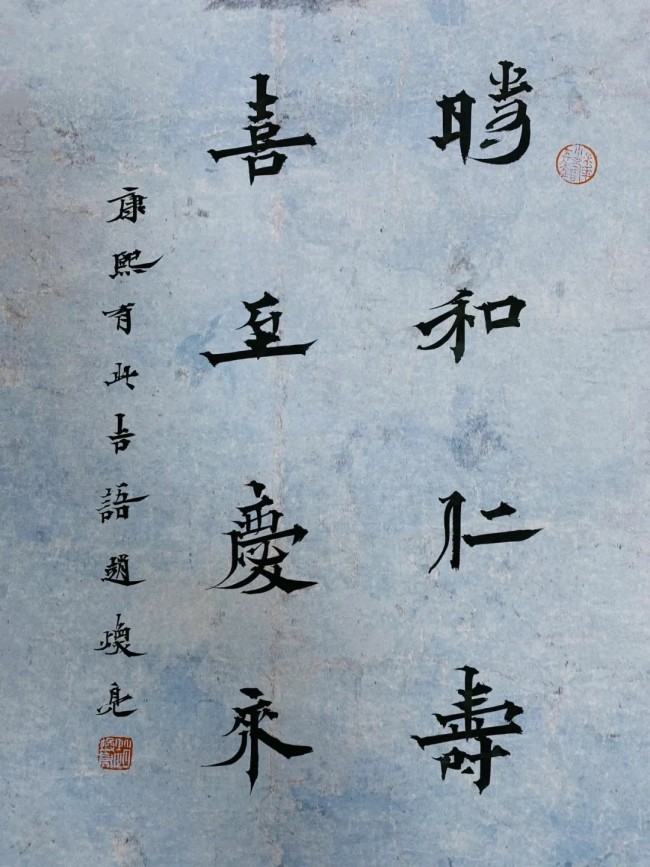 時和仁壽
喜至慶來
康熙有此吉語趙煥亮